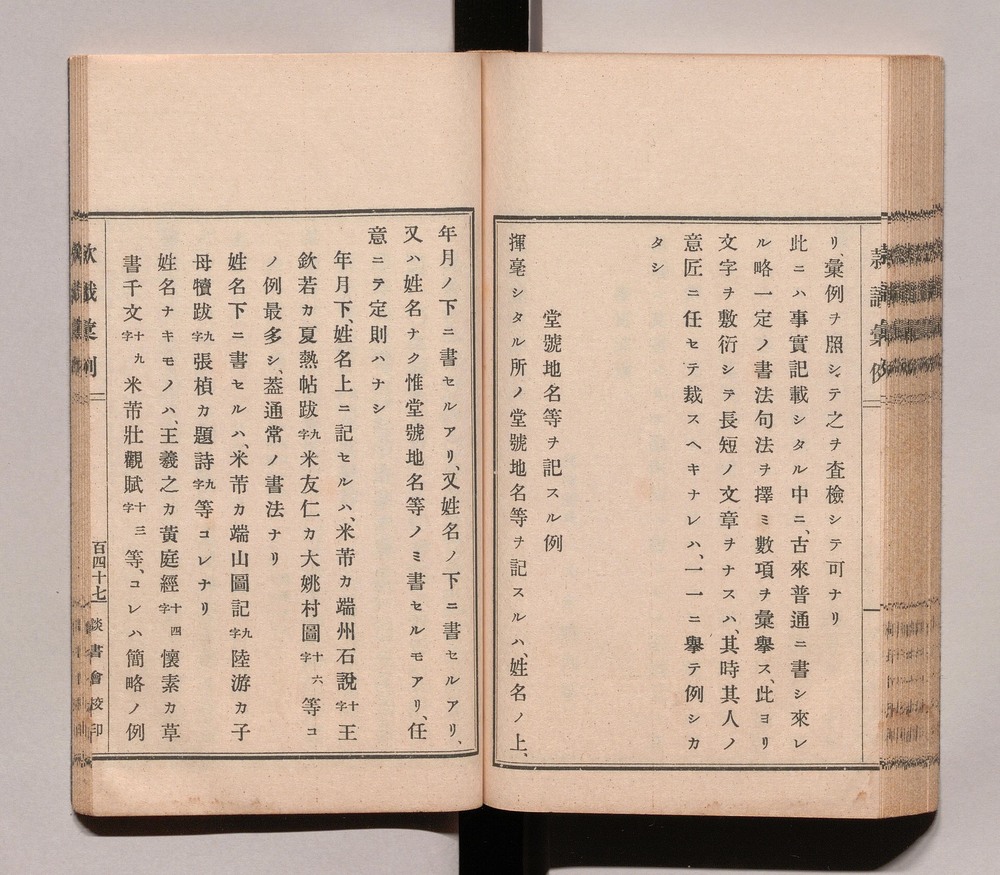 リ、彙例ヲ照シテ之ヲ査檢シテ可ナリ
此ニハ事實記載シタル中ニ、古來普通ニ書シ來レ
ル略一定ノ書法句法ヲ擇ミ數項ヲ彙擧ス、此ヨリ
文字ヲ敷衍シテ長短ノ文章ヲナスハ、其時其人ノ
意匠ニ任セテ裁スヘキナレハ、一一ニ擧テ例シカ
タシ
堂號地名等ヲ記スル例
揮毫シタル所ノ堂號地名等ヲ記スルハ、姓名ノ上、
年月ノ下ニ書セルアリ、又姓名ノ下ニ書セルアリ、
又ハ姓名ナク惟堂號地名等ノミ書セルモアリ、任
意ニテ定則ハナシ
年月下、姓名上ニ記セルハ、米芾カ端州石說十字王
欽若カ夏熱帖跋九字米友仁カ大姚村圖十六字等コ
ノ例最多シ、葢通常ノ書法ナリ
姓名下ニ書セルハ、米芾カ端山圖記九字陸游カ子
母犢跋九字張楨カ題詩九字等コレナリ
姓名ナキモノハ、王羲之カ黃庭經十四字懷素カ草
書千文十九字米芾壯觀賦十三字等、コレハ簡略ノ例
百四十七
談書會校印